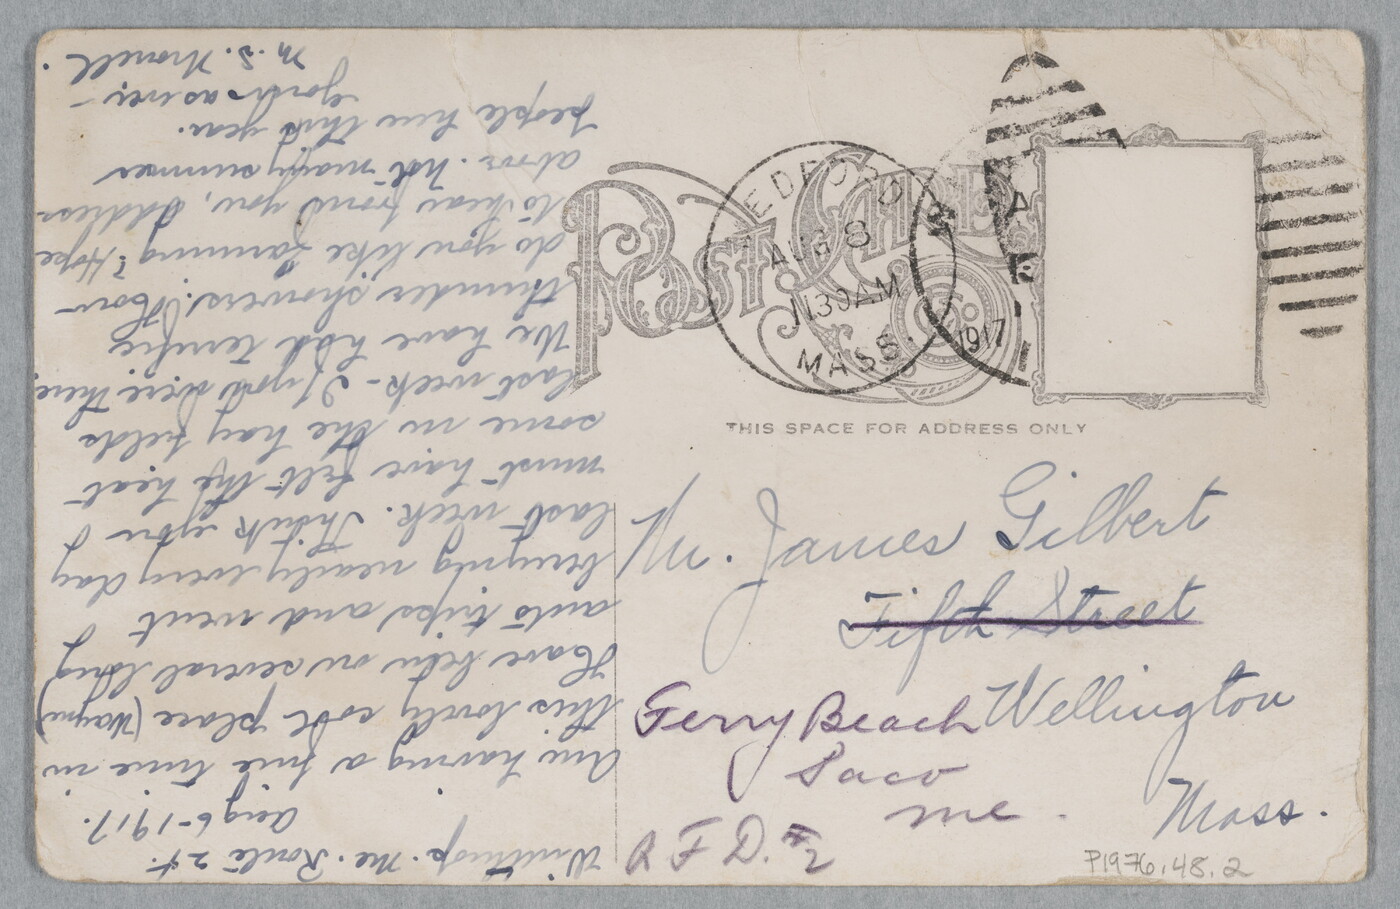 Winthrop. Me. Route 24.
Aug 6-1917.
Am having a fine time in
this lovely cool place (Wayne)
Have been on several long
auto trips and went
berrying nearly every day
last week. Think you
must have felt the heat
some in the hay fields
last week - If you were there,
We have had terrific
thunder showers! How
do you like farming? Hope
to hear from you, Address
above. Not many summer
people here this year.
Yours as ever -
M. S.
POST CARD
MEDFORD
AUG 8
1130AM
MASS.
1917
THIS SPACE FOR ADDRESS ONLY
Mr. James Gilbert
Fifth Street
Wellington
Mass.
Ferry Beach
Saco
me.
R F D. #2
P1976.48.2